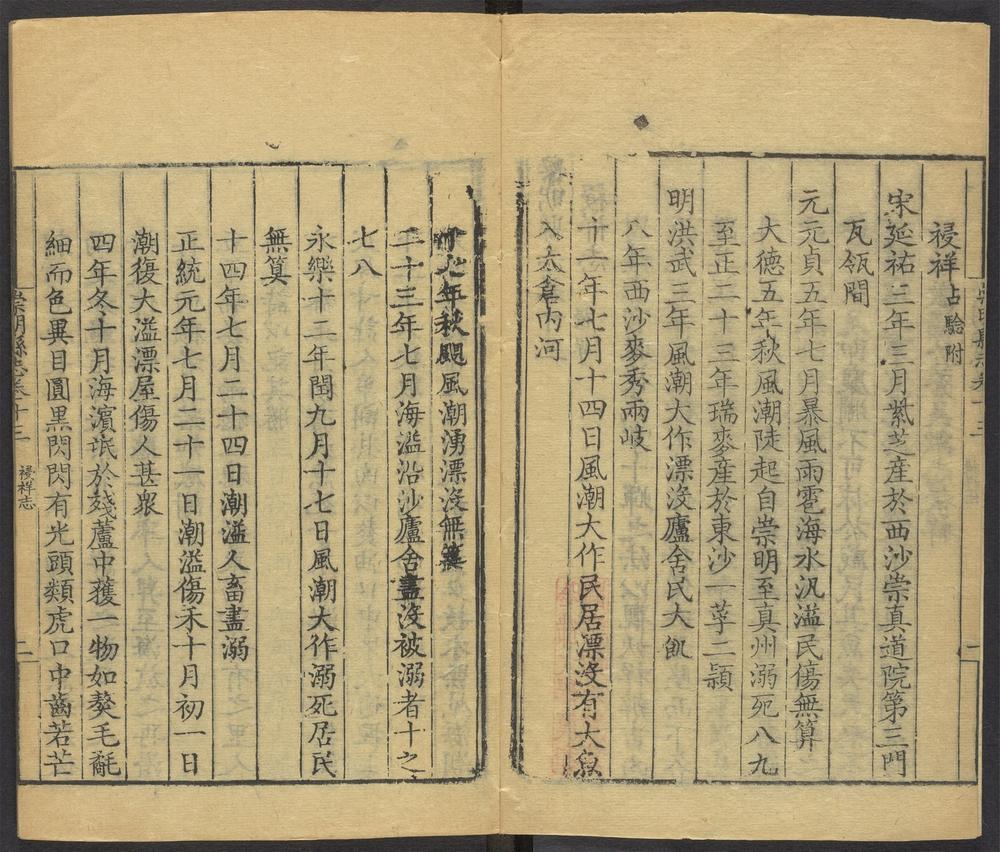 祲祥占驗附
宋延祐三年三月紫芝產於西沙崇真道院第三門
瓦瓴間
元元貞五年七月暴風雨雹海水汎溢民傷無算
大德五年秋風潮陡起自崇明至真州溺死八九
至正二十三年瑞麥產於東沙一莖二穎
明洪武三年風潮大作漂沒廬舍民大飢
八年西沙麥秀兩岐
十一年七月十四日風潮大作民居漂沒有大魚
入太倉內河
年秋颶風潮湧漂沒無筭
二十三年七月海溢沿沙廬舍盡沒被溺者十之
七八
永樂十二年閏九月十七日風潮大作溺死居民
無算
十四年七月二十四日潮溢人畜盡溺
正統元年七月二十一日潮溢傷禾十月初一日
潮復大溢漂屋傷人甚衆
四年冬十月海濱氓於殘蘆中蒦一物如獒毛毳
細而色異目圓黑閃閃有光頭類虎口中齒若芒
崇明縣志卷十三 祲祥志 二